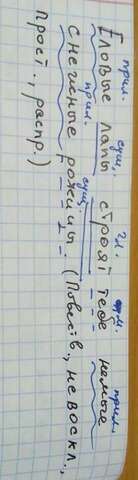 прил. сущ. гл. прил.
Еловые лапы строят тебе немые
прил. сущ.
снежные рожицы (Повеств., невоскл.,
прост., распр.)